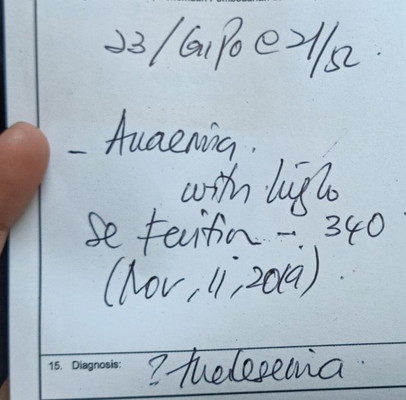 23/G1P0 @ 21/52.
- Anaemia.
with high
Se Ferritin - 340
(Nov, 11, 2019).
15. Diagnosis: ? thalesemia.